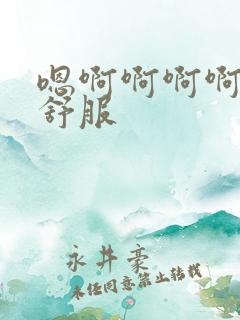 嗯啊啊啊啊
舒服
永井豪
未经同意禁止转载